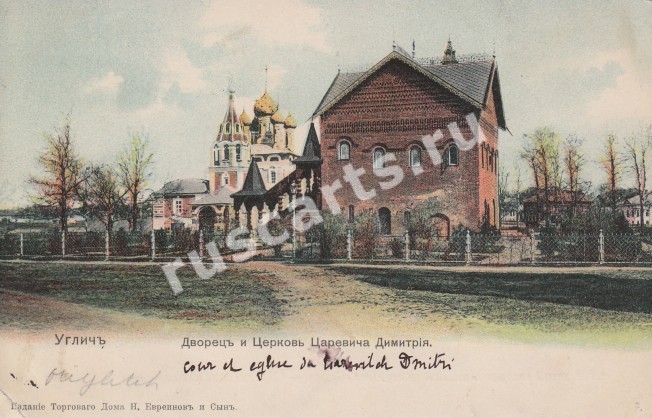 ruscarts.ru
Угличъ
Дворецъ и Церковь Царевича Димитрія.
cour et eglise du tzarevitch Dmitri
Изданіе Торговаго Дома Н, Евреиновъ и Сынъ.